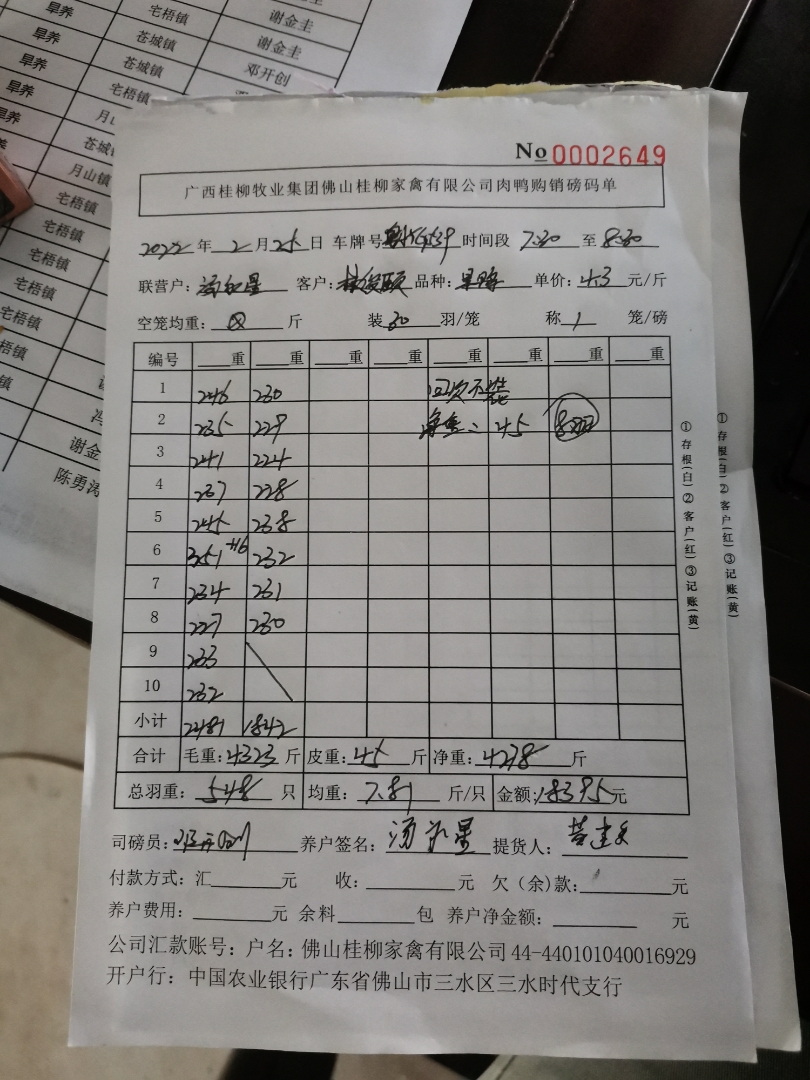 旱养 宅梧镇 谢金圭
旱养 苍城镇 谢金圭
旱养 苍城镇 邓开创
旱养 宅梧镇
旱养 月山
旱养 苍城
月山镇
宅梧镇
宅梧镇
宅梧镇
宅梧镇
宅梧镇
梧镇
谢金
陈勇涛
No 0002649
广西桂柳牧业集团佛山桂柳家禽有限公司肉鸭购销磅码单
2022 年 2 月 25 日 车牌号 时间段 7:30 至 8:30
联营户: 客户: 品种: 旱鸭 单价: 4.3 元/斤
空笼均重: 斤 装 30 羽/笼 称 1 笼/磅
编号 重 重 重 重 重 重 重 重
1 246 230 回收不装
2 235 229 净重: 45
3 241 224
4 237 228
5 245 238
6 351 +16 232
7 234 231
8 227 230
9 233
10 232
小计 2481 1842
合计 毛重: 4323 斤 皮重: 45 斤 净重: 4278 斤
总羽重: 548 只 均重: 7.81 斤/只 金额: 18395 元
司磅员: 邓开创 养户签名: 提货人:
付款方式: 汇 元 收: 元 欠(余)款: 元
养户费用: 元 余料 包 养户净金额: 元
公司汇款账号: 户名: 佛山桂柳家禽有限公司 44-440101040016929
开户行: 中国农业银行广东省佛山市三水区三水时代支行
①存根(白)②客户(红)③记账(黄)
①存根(白)②客户(红)③记账(黄)